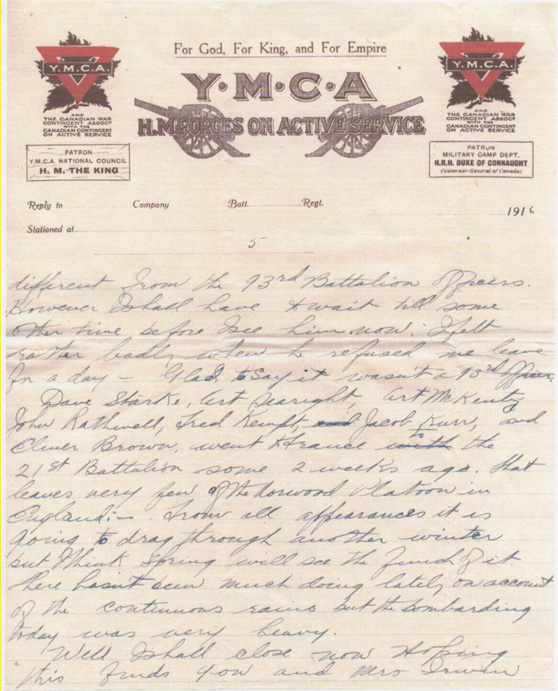 For God, For King, and For Empire
Y.M.C.A.
Y.M.C.A
Y.M.C.A.
H.M. FORCES ON ACTIVE SERVICE
AND
THE CANADIAN WAR
CONTINGENT ASSOCN
WITH THE
CANADIAN CONTINGENT
ON ACTIVE SERVICE
AND
THE CANADIAN WAR
CONTINGENT ASSOCN
WITH THE
CANADIAN CONTINGENT
ON ACTIVE SERVICE
PATRON
Y.M.C.A. NATIONAL COUNCIL
H. M. THE KING
PATRON
MILITARY CAMP DEPT.
H.R.H. DUKE OF CONNAUGHT
(Governor-General of Canada)
Reply to Company Batt. Regt.
1916
Stationed at
5
different from the 93rd Battalion Officers.
However I shall have to wait till some
other time before I see him now. I felt
rather badly when he refused me leave
for a day - Glad to say it wasn't a 93rd Officer
Dave Starke, Art Searight, Art McKenty
John Rathwell, Fred Kempt, and Jacob Kurr, and
Elmer Brown, went to France with to the
21st Battalion some 2 weeks ago. that
leaves very few of the Norwood Platoon in
England:- From all appearances it is
going to drag through another winter
but I think Spring will see the finish of it.
There hasn't been much doing lately on account
of the continuous rains but the bombarding
today was very heavy.
Well I shall close now Hoping
this finds you and Mrs Irwin